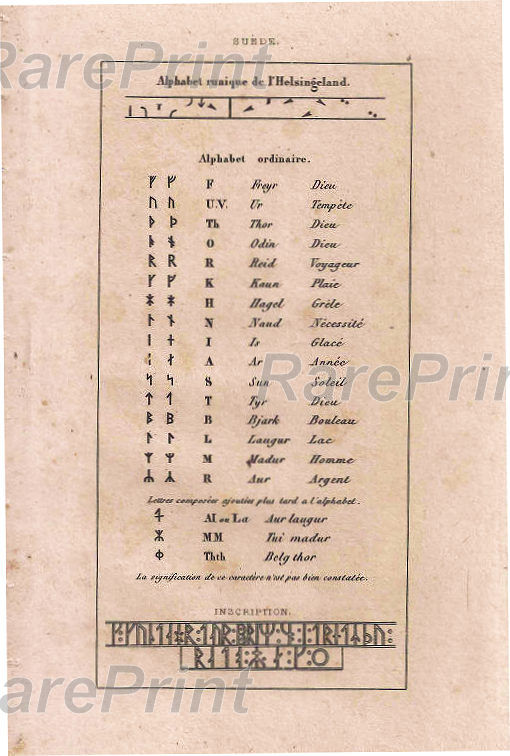 SUÈDE.
RarePrint
Alphabet runique de l'Helsingeland.
Alphabet ordinaire.
ᚠ ᚠ F Freyr Dieu
ᚢ ᚢ U.V. Ur Tempête
ᚦ ᚦ Th Thor Dieu
O Odin Dieu
ᚱ ᚱ R Reid Voyageur
ᚴ ᚴ K Kaun Plaie
ᚼ ᚼ H Hagel Grêle
ᚿ ᚾ N Naud Nécessité
ᛁ I Is Glacé
A Ar Année
ᛋ ᛋ S Sun Soleil
RarePrint
ᛏ ᛏ T Tyr Dieu
ᛒ ᛒ B Bjark Bouleau
ᛚ ᛚ L Laugur Lac
ᛘ ᛘ M Madur Homme
ᛦ ᛦ R Aur Argent
Lettres composées ajoutées plus tard a l'alphabet.
Al ou La Aur laugur
MM Tui madur
Thth Belg thor
La signification de ce caractère n'est pas bien constatée.
INSCRIPTION.
RarePrint